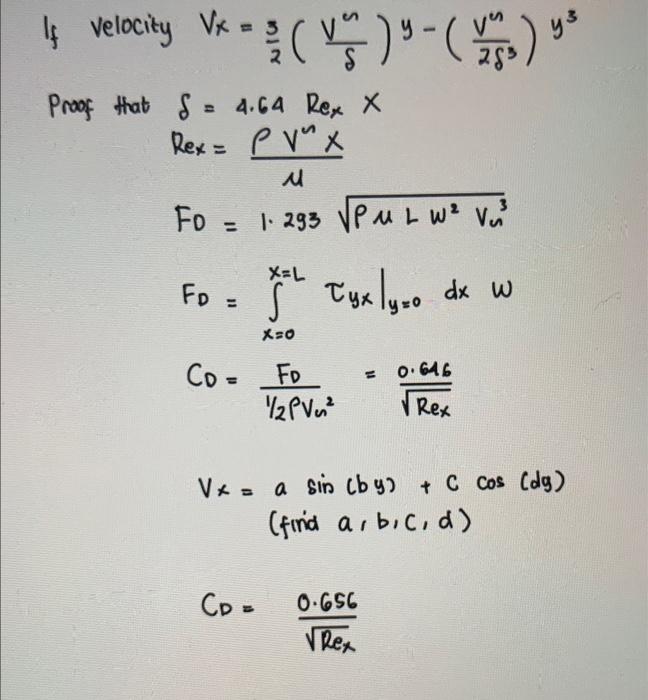 If velocity Vx = 3/2 ( V∞ / δ ) y - ( V∞ / 2δ³ ) y³
Proof that δ = 4.64 Rex X
Rex = ρ V∞ X / μ
FD = 1.293 √(ρ μ L W² V∞³)
FD = ∫ x=0 to x=L τyx |y=0 dx W
CD = FD / ½ρV∞² = 0.646 / √Rex
Vx = a sin (by) + C cos (dy)
(find a, b, c, d)
CD = 0.656 / √Rex